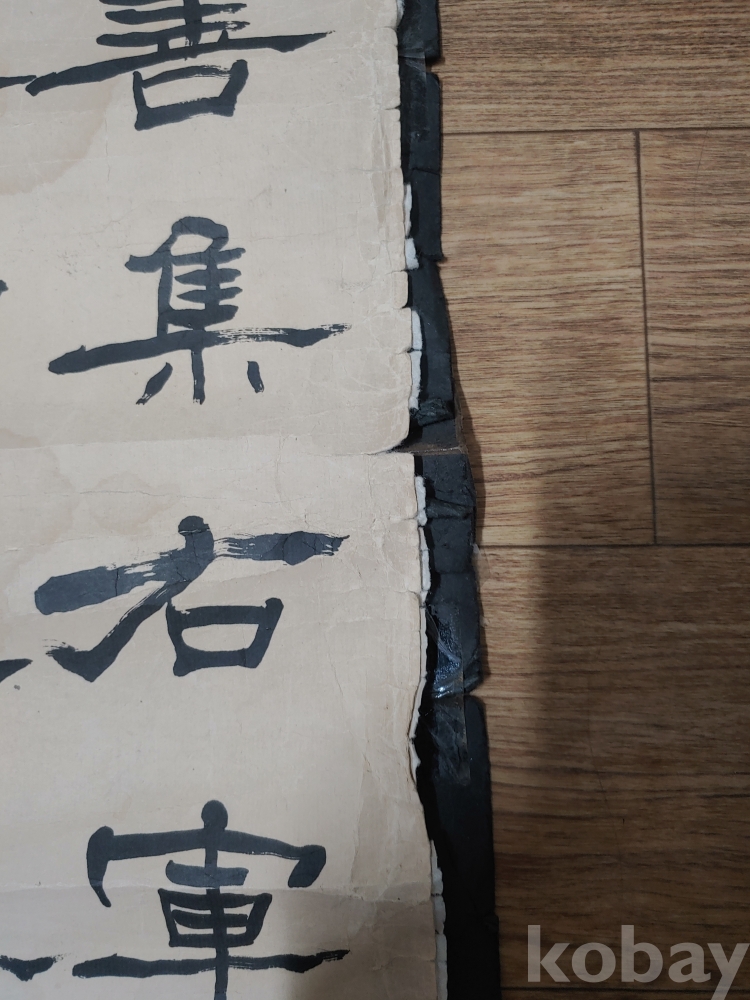 善集右軍
kobay